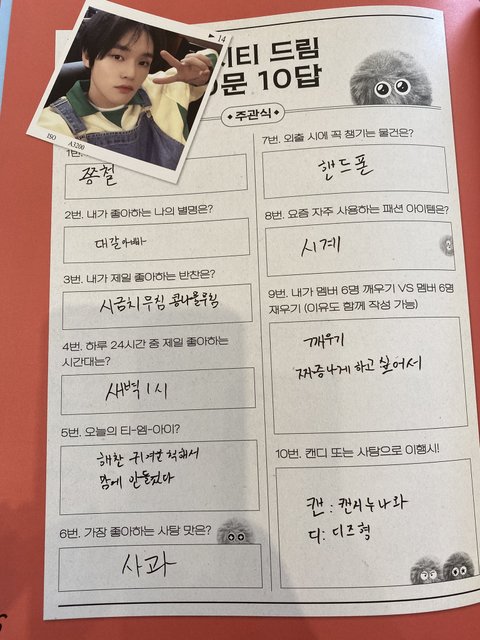 ▶ 14
시티 드림
문 10답
주관식
ISO A3200
1번.
종철
2번. 내가 좋아하는 나의 별명은?
대갈아빠
3번. 내가 제일 좋아하는 반찬은?
시금치무침 콩나물무침
4번. 하루 24시간 중 제일 좋아하는
시간대는?
새벽 1시
5번. 오늘의 티-엠-아이?
해찬 귀여운 척해서
맘에 안들었다
6번. 가장 좋아하는 사탕 맛은?
사과
7번. 외출 시에 꼭 챙기는 물건은?
핸드폰
8번. 요즘 자주 사용하는 패션 아이템은?
시계
9번. 내가 멤버 6명 깨우기 VS 멤버 6명
재우기 (이유도 함께 작성 가능)
깨우기
짜증나게 하고 싶어서
10번. 캔디 또는 사탕으로 이행시!
캔 : 캔시누나와
디 : 디즈형